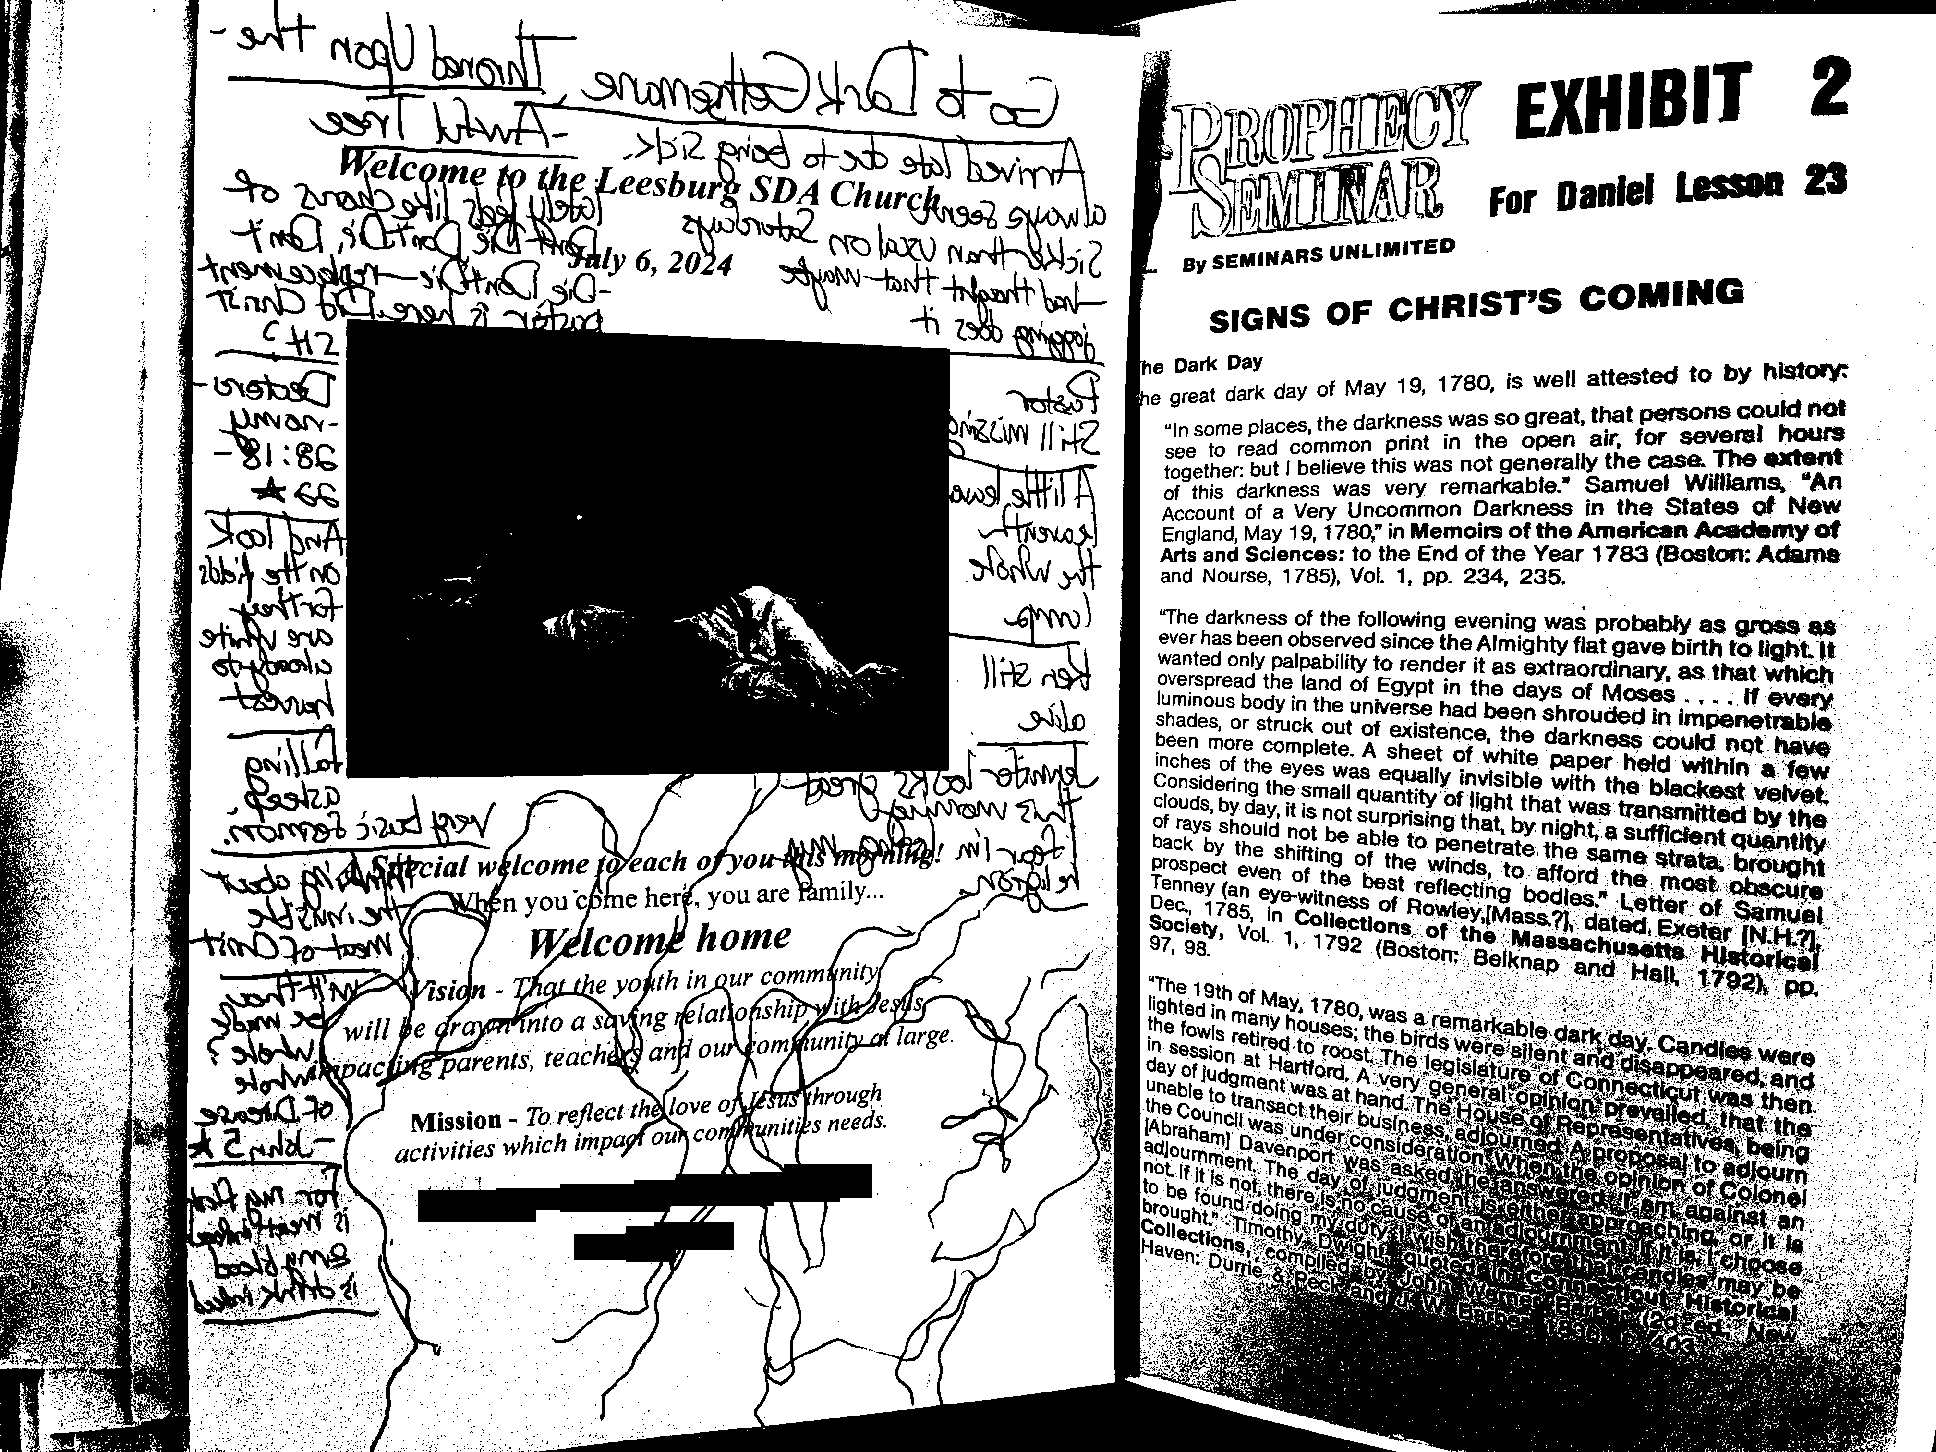 Go to Dark Gethsemane,
Throned Upon the-
-Awful Tree
Arrived late due to being sick.
always seem
sicker than usual on Saturdays
had thought that maybe
jogging does it
Pastor
Still missing
A little leaven
leaventh
the whole
lump
Ken still
alive
Jennifer looks great
this morning
fear I'm losing my
religion.
lately feels like chorus of
Don't Die Don't Die, Don't
-Die Don't Die - replacement
pastor is here. Did Christ
SH?
Deotero-
-nomy
28:18-
22 ★
And look
on the fields
for they
are white
already to
harvest
falling
asleep.
very basic sermon.
thinking about
the invisible
meat of Christ
wilt thou
be made
whole?
whole
of Disease
-John 5 ★
For my flesh
is meat indeed
& my blood
is drink indeed
Welcome to the Leesburg SDA Church
July 6, 2024
A Special welcome to each of you this morning!
When you come here, you are family...
Welcome home
Vision - That the youth in our community
will be drawn into a saving relationship with Jesus
impacting parents, teachers and our community at large.
Mission - To reflect the love of Jesus through
activities which impact our communities needs.
PROPHECY
SEMINAR
EXHIBIT 2
For Daniel Lesson 23
By SEMINARS UNLIMITED
SIGNS OF CHRIST'S COMING
he Dark Day
he great dark day of May 19, 1780, is well attested to by history:
"In some places, the darkness was so great, that persons could not
see to read common print in the open air, for several hours
together: but I believe this was not generally the case. The extent
of this darkness was very remarkable." Samuel Williams, "An
Account of a Very Uncommon Darkness in the States of New
England, May 19, 1780," in Memoirs of the American Academy of
Arts and Sciences: to the End of the Year 1783 (Boston: Adams
and Nourse, 1785), Vol. 1, pp. 234, 235.
"The darkness of the following evening was probably as gross as
ever has been observed since the Almighty fiat gave birth to light. It
wanted only palpability to render it as extraordinary, as that which
overspread the land of Egypt in the days of Moses . . . . If every
luminous body in the universe had been shrouded in impenetrable
shades, or struck out of existence, the darkness could not have
been more complete. A sheet of white paper held within a few
inches of the eyes was equally invisible with the blackest velvet.
Considering the small quantity of light that was transmitted by the
clouds, by day, it is not surprising that, by night, a sufficient quantity
of rays should not be able to penetrate the same strata, brought
back by the shifting of the winds, to afford the most obscure
prospect even of the best reflecting bodies." Letter of Samuel
Tenney (an eye-witness of Rowley,[Mass.?], dated, Exeter [N.H.?],
Dec., 1785, in Collections of the Massachusetts Historical
Society, Vol. 1, 1792 (Boston: Belknap and Hall, 1792), pp.
97, 98.
"The 19th of May, 1780, was a remarkable dark day. Candles were
lighted in many houses; the birds were silent and disappeared, and
the fowls retired to roost. The legislature of Connecticut was then
in session at Hartford. A very general opinion prevailed, that the
day of judgment was at hand. The House of Representatives, being
unable to transact their business, adjourned. A proposal to adjourn
the Council was under consideration. When the opinion of Colonel
[Abraham] Davenport was asked, he answered, 'I am against an
adjournment. The day of judgment is either approaching, or it is
not. If it is not, there is no cause of an adjournment: if it is, I choose
to be found doing my duty. I wish therefore that candles may be
brought." Timothy Dwight, quoted in Connecticut Historical
Collections, compiled by John Warner Barber (2d ed.; New
Haven: Durrie & Peck and J. W. Barber, 1836), p. 403.